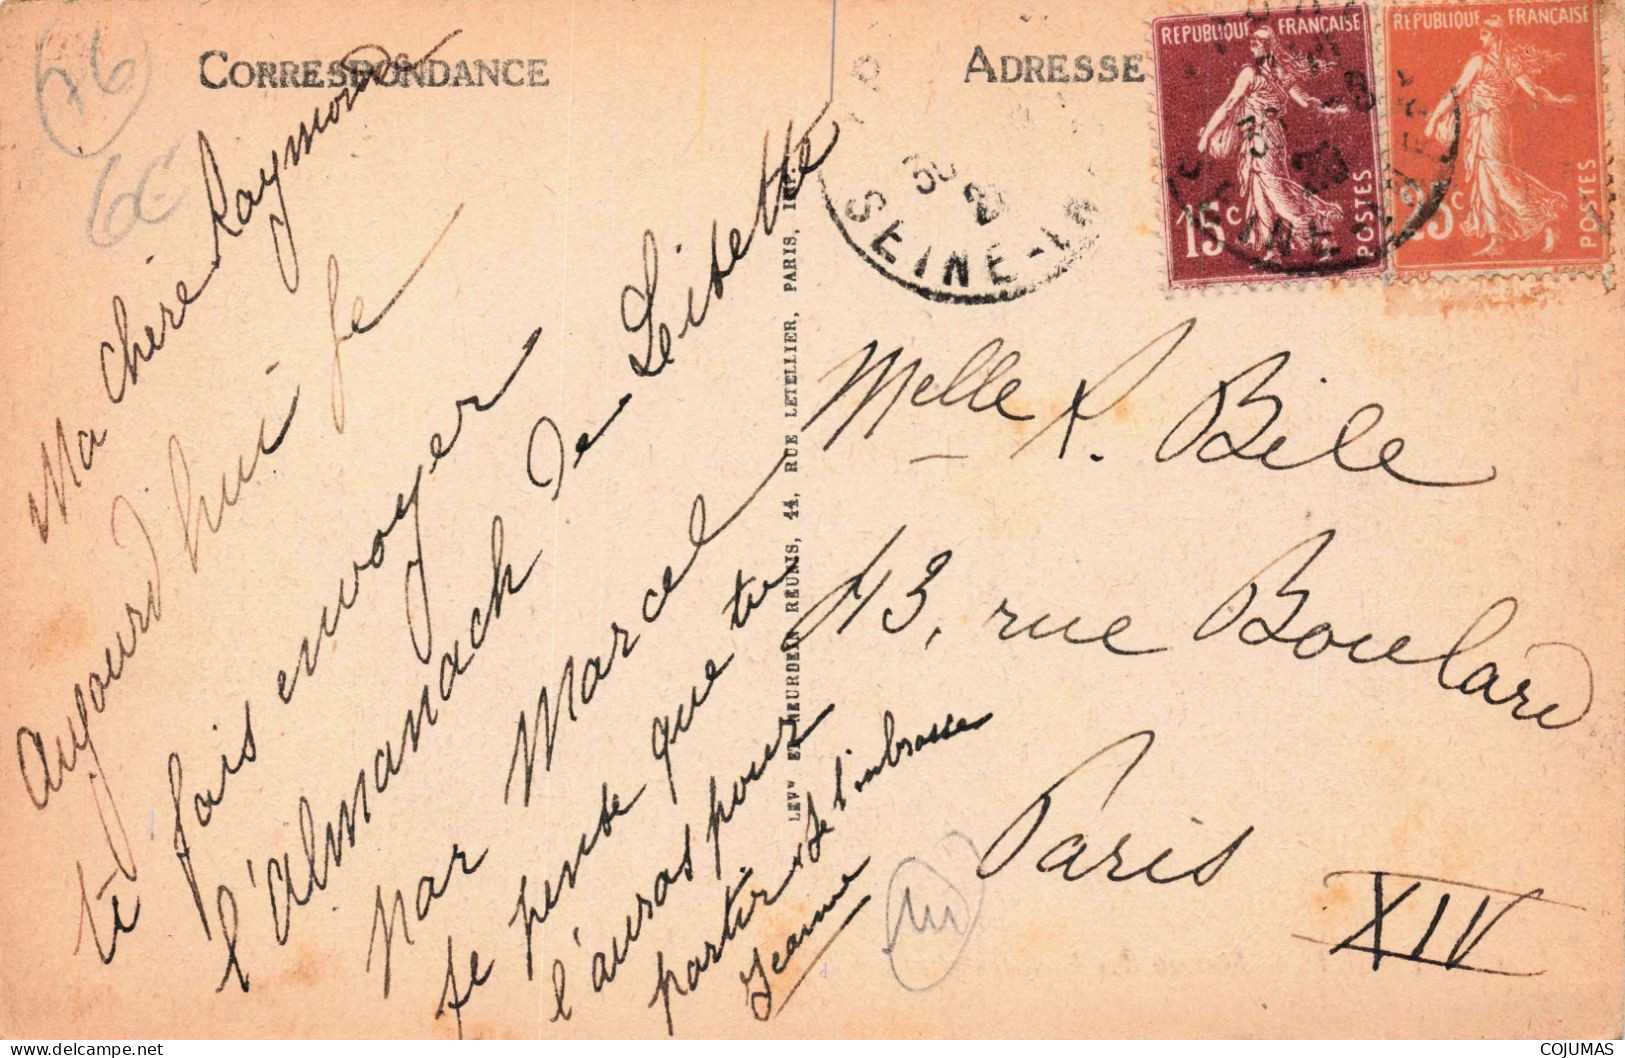 CORRESPONDANCE
ADRESSE
76
6€
REPUBLIQUE FRANÇAISE
15c
POSTES
REPUBLIQUE FRANÇAISE
25c
POSTES
SEINE-IN
Ma chère Raymonde
Aujourd'hui je
te fais envoyer
l'almanach de Lisette
par Marcel
je pense que tu
l'auras pour
partir. Je t'embrasse
Jeanne
LEVY ET NEURDEIN REUNIS, 44, RUE LETELLIER, PARIS, IMP.
Melle R. Bile
43, rue Boulard
Paris
XIV
COJUMAS